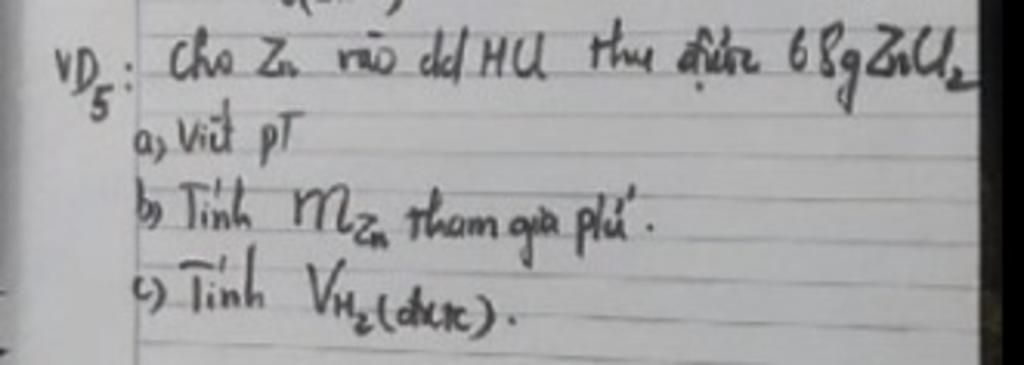 VD5: Cho Zn vào dd HCl thu được 68g ZnCl2
a, Viết pT
b) Tính mZn tham gia pứ.
c) Tính VH2 (đktc).